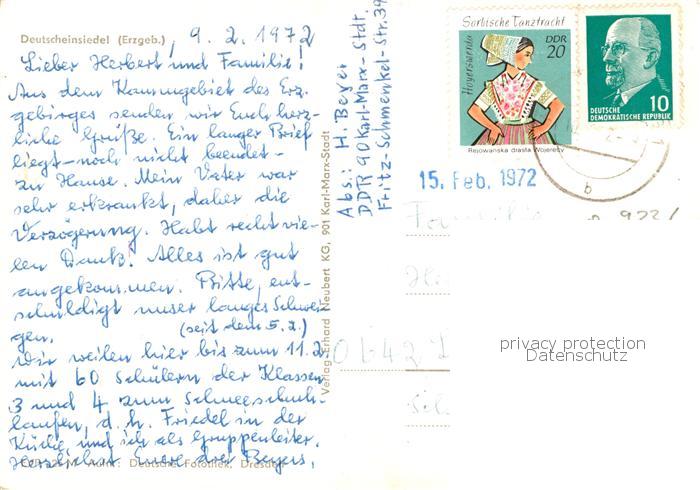 Deutscheinsiedel (Erzgeb.), 9.2.1972
Lieber Herbert und Familie!
Aus dem Kammgebiet des Erz-
gebirges senden wir Euch herz-
liche Grüße. Ein langer Brief
liegt - noch nicht beendet -
zu Hause. Mein Vater war
sehr erkrankt, daher die
Verzögerung. Habt recht vie-
len Dank! Alles ist gut
angekommen. Bitte, ent-
schuldigt unser langes Schwei-
gen. (seit dem 5.2.)
Wir weilen hier bis zum 11.2.
mit 60 Schülern der Klassen
3 und 4 zum Schneeschuh-
laufen, d.h. Friedel in der
Küche und ich als Gruppenleiter.
Herzlichst Euere drei Beyers.
Aufn.: Deutsche Fotothek, Dresden
Verlag Erhard Neubert KG, 901 Karl-Marx-Stadt
Abs.: H. Beyer
DDR 90 Karl-Marx-Stdt.
Fritz-Schmenkel-Str. 39
Sorbische Tanztracht
Hoyerswerda
DDR
20
Rejowanska drasta Wojerecy
10
DEUTSCHE
DEMOKRATISCHE REPUBLIK
b
15. Feb. 1972
Familie
privacy protection
Datenschutz